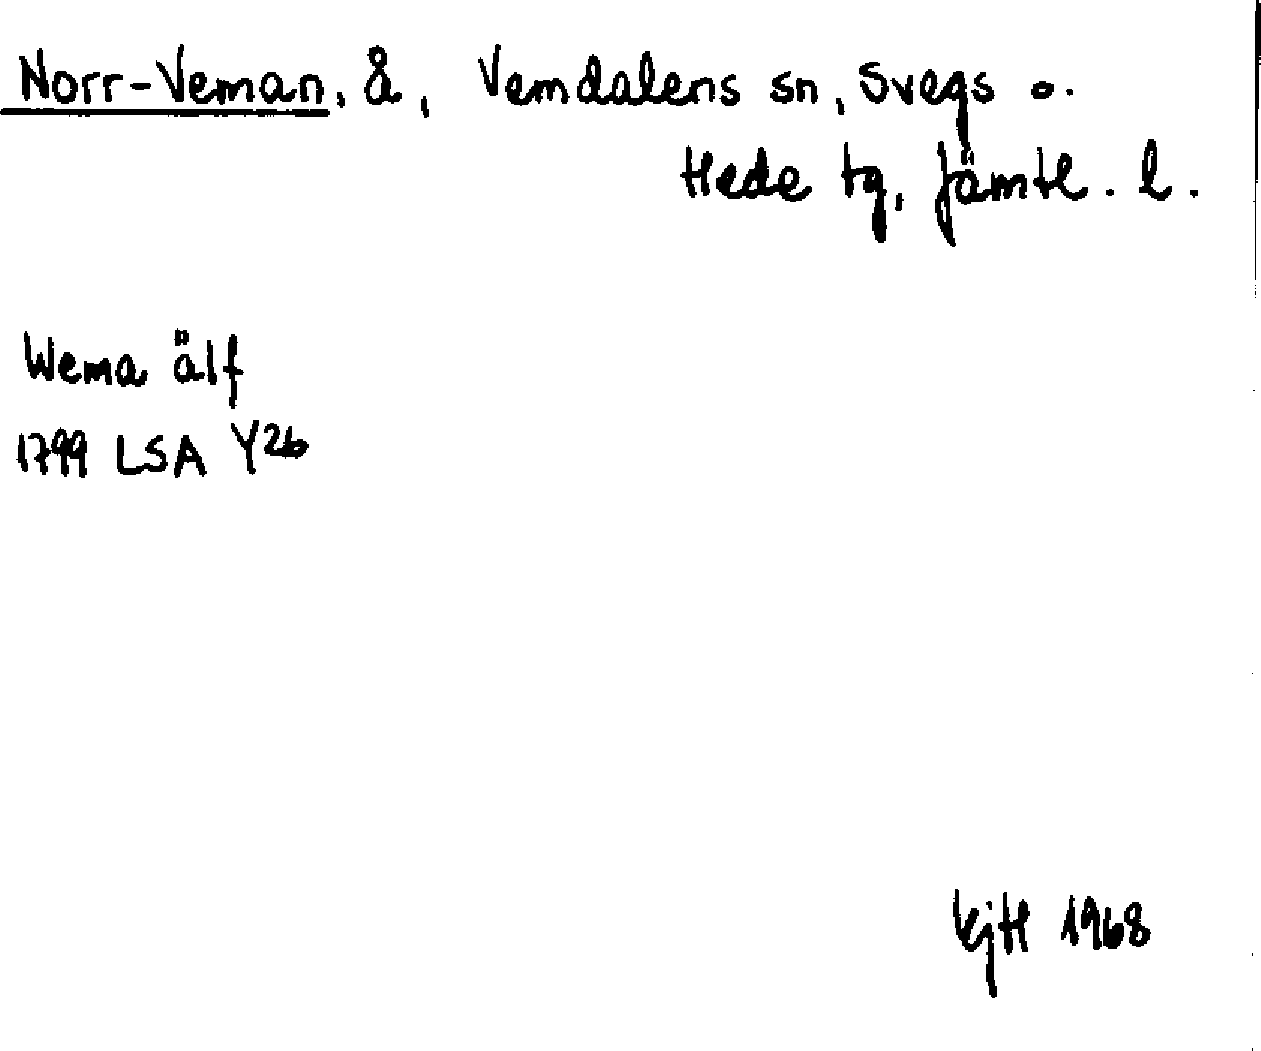 Norr-Veman, å, Vemdalens sn, Svegs o.
Hede tg, Jämtl. l.
Wema älf
1799 LSA Y26
KjH 1968